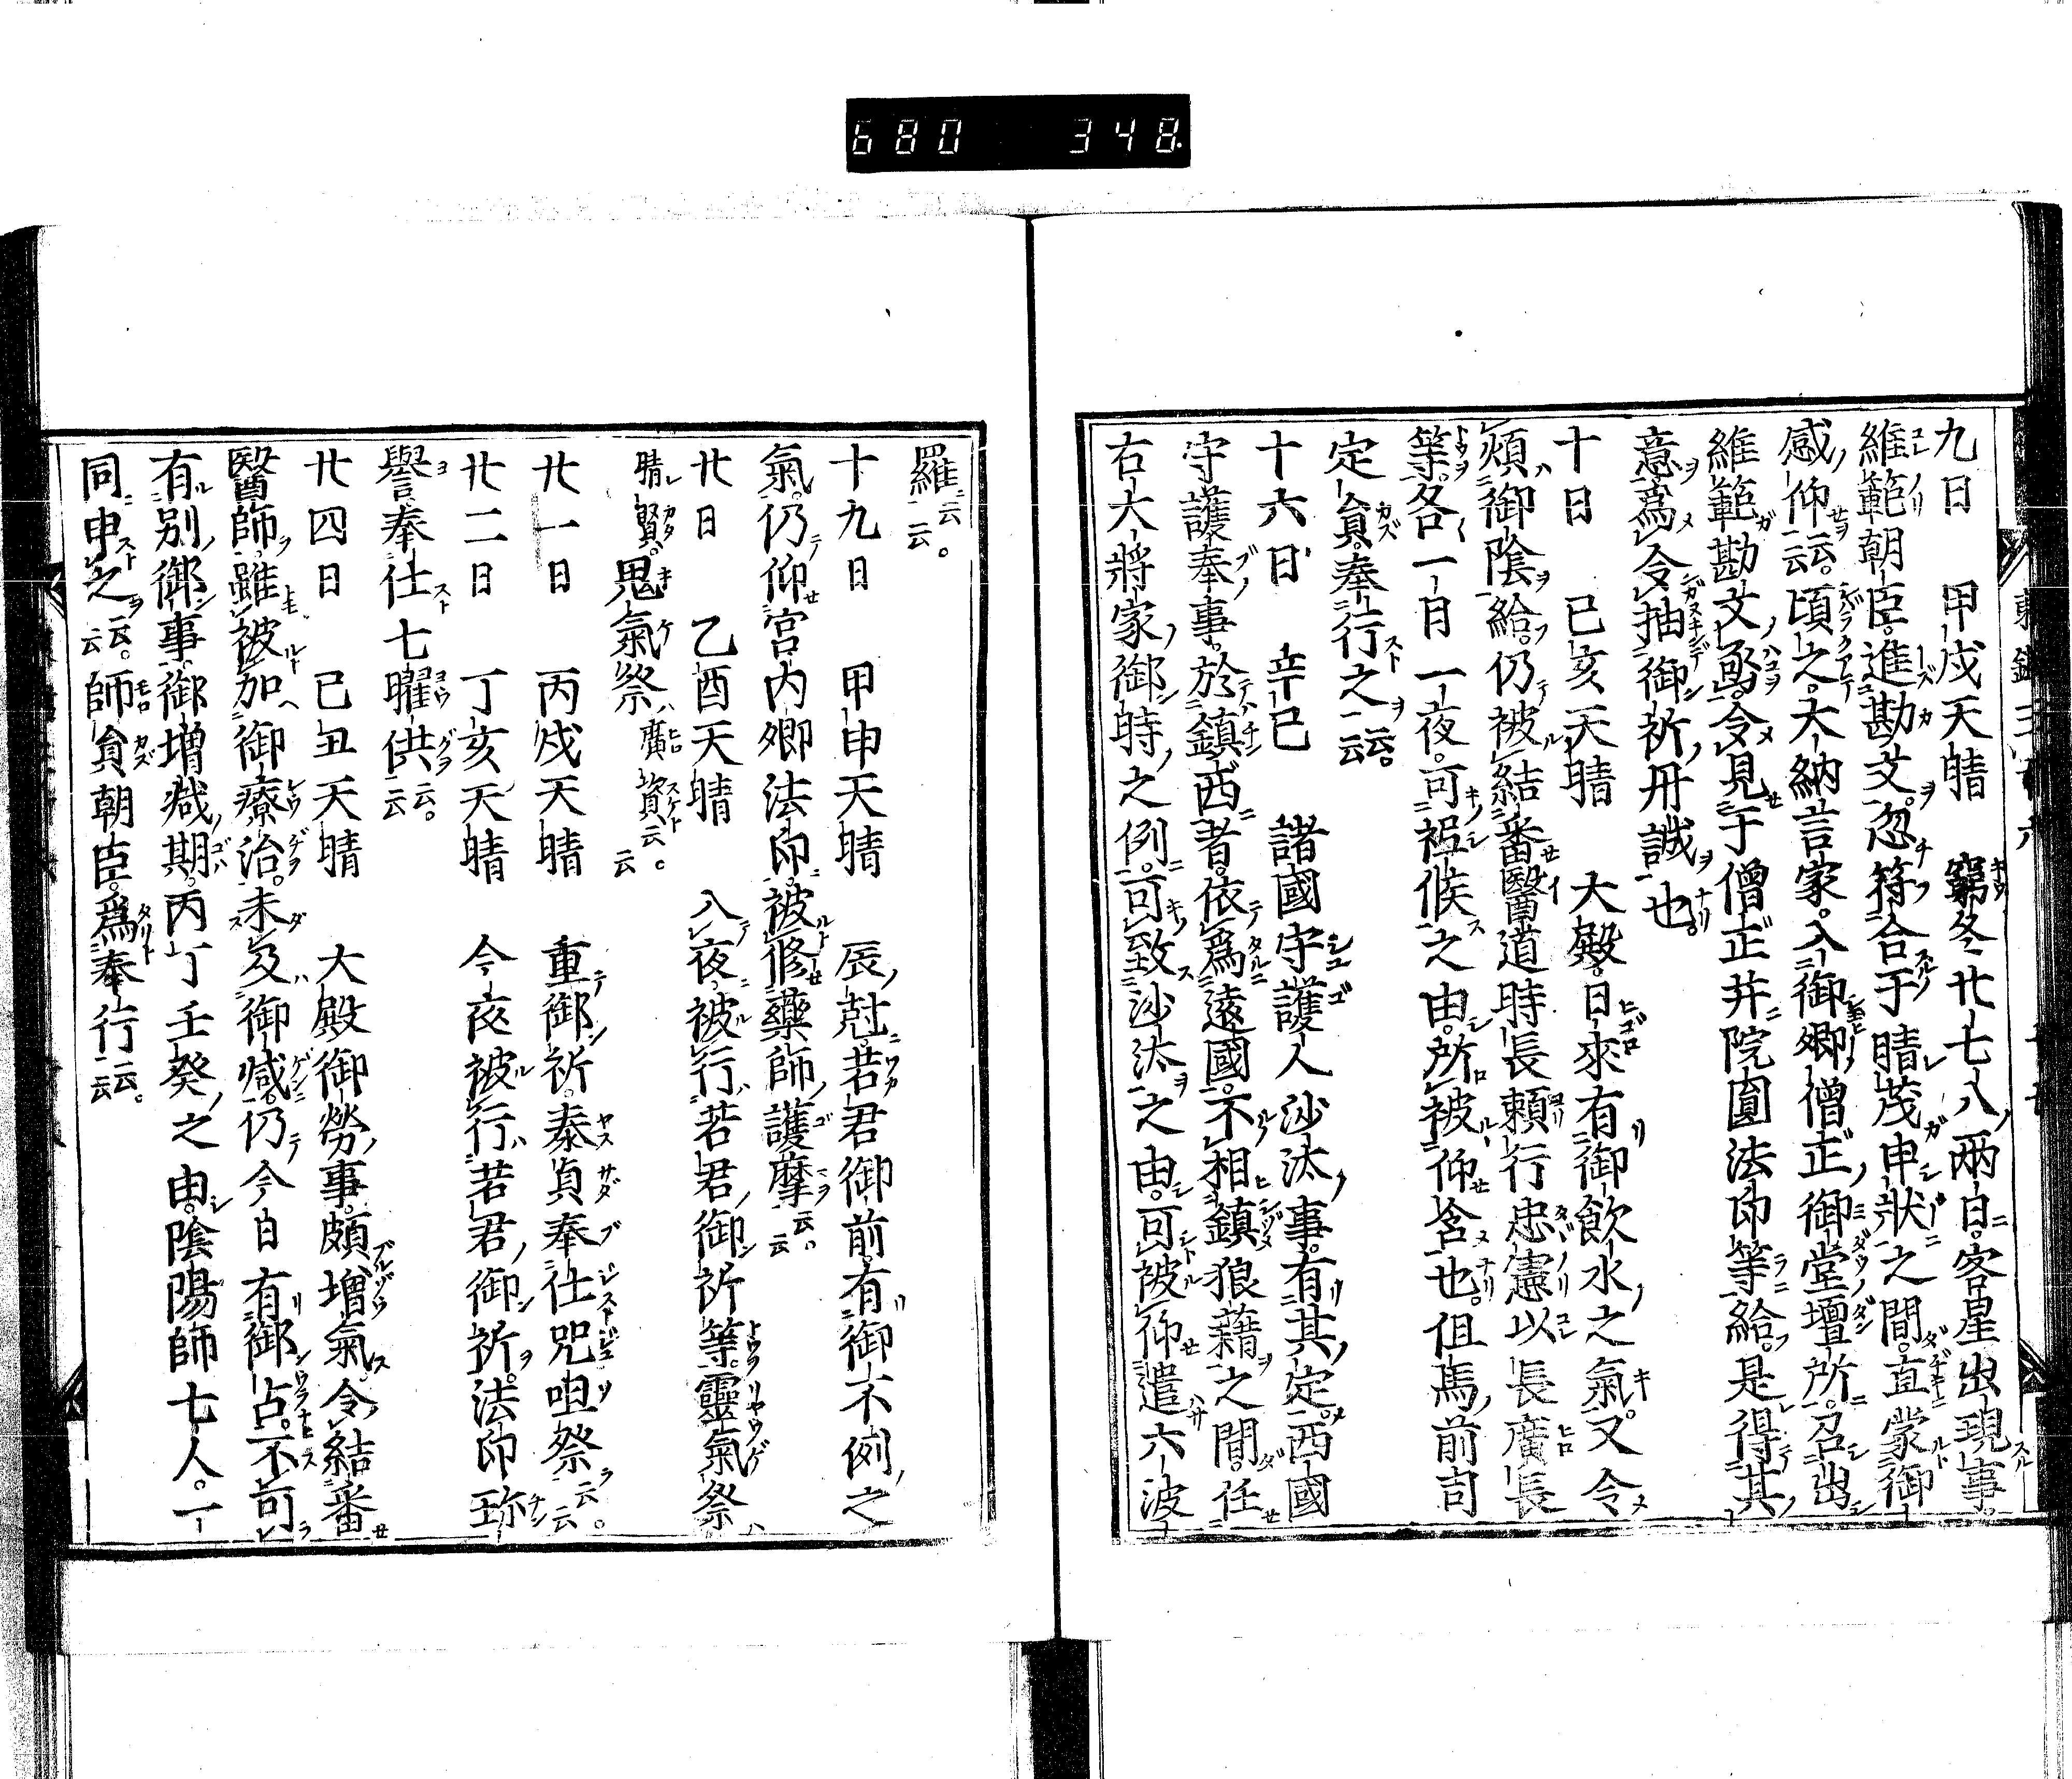 680 348.
九日 甲戌天晴 窮冬廿七八兩日客星出現事。
維範朝臣。進勘文。忽符合于晴茂申狀之間。直蒙御
感仰云云。頃之。大納言家。入御卿僧正御堂壇所。召出
維範勘文凾。令見于僧正并院圓法印等給。是得其
意爲令抽御祈丹誠也。
十日 己亥天晴 大殿。日來有御飮水之氣。又令
煩御陰給。仍被結番醫道時長頼行忠憲以長廣長
等。各一月一夜。可祗候之由。所被仰含也。但馬前司
定員。奉行之云云。
十六日 辛巳 諸國守護人沙汰事。有其定。西國
守護奉事。於鎮西者。依爲遠國。不相鎮狼藉之間。任
右大將家御時之例。可致沙汰之由。可被仰遣六波
羅云云。
十九日 甲申天晴 辰尅。若君御前有御不例之
氣。仍仰宮内卿法印。被修藥師護摩云云。
廿日 乙酉天晴 入夜。被行若君御祈等。靈氣祭
晴賢。鬼氣祭廣資云云。
廿一日 丙戌天晴 重御祈。泰貞奉仕咒咀祭云云。
廿二日 丁亥天晴 今夜被行若君御祈。法印珎
譽奉仕七曜供云云。
廿四日 己丑天晴 大殿御勞事。頗増氣。令結番
醫師。雖被加御療治。未及御减。仍今日有御占。不可
有別御事。御増减期。丙丁壬癸之由。陰陽師七人。一
同申之云云。師員朝臣。爲奉行云云。